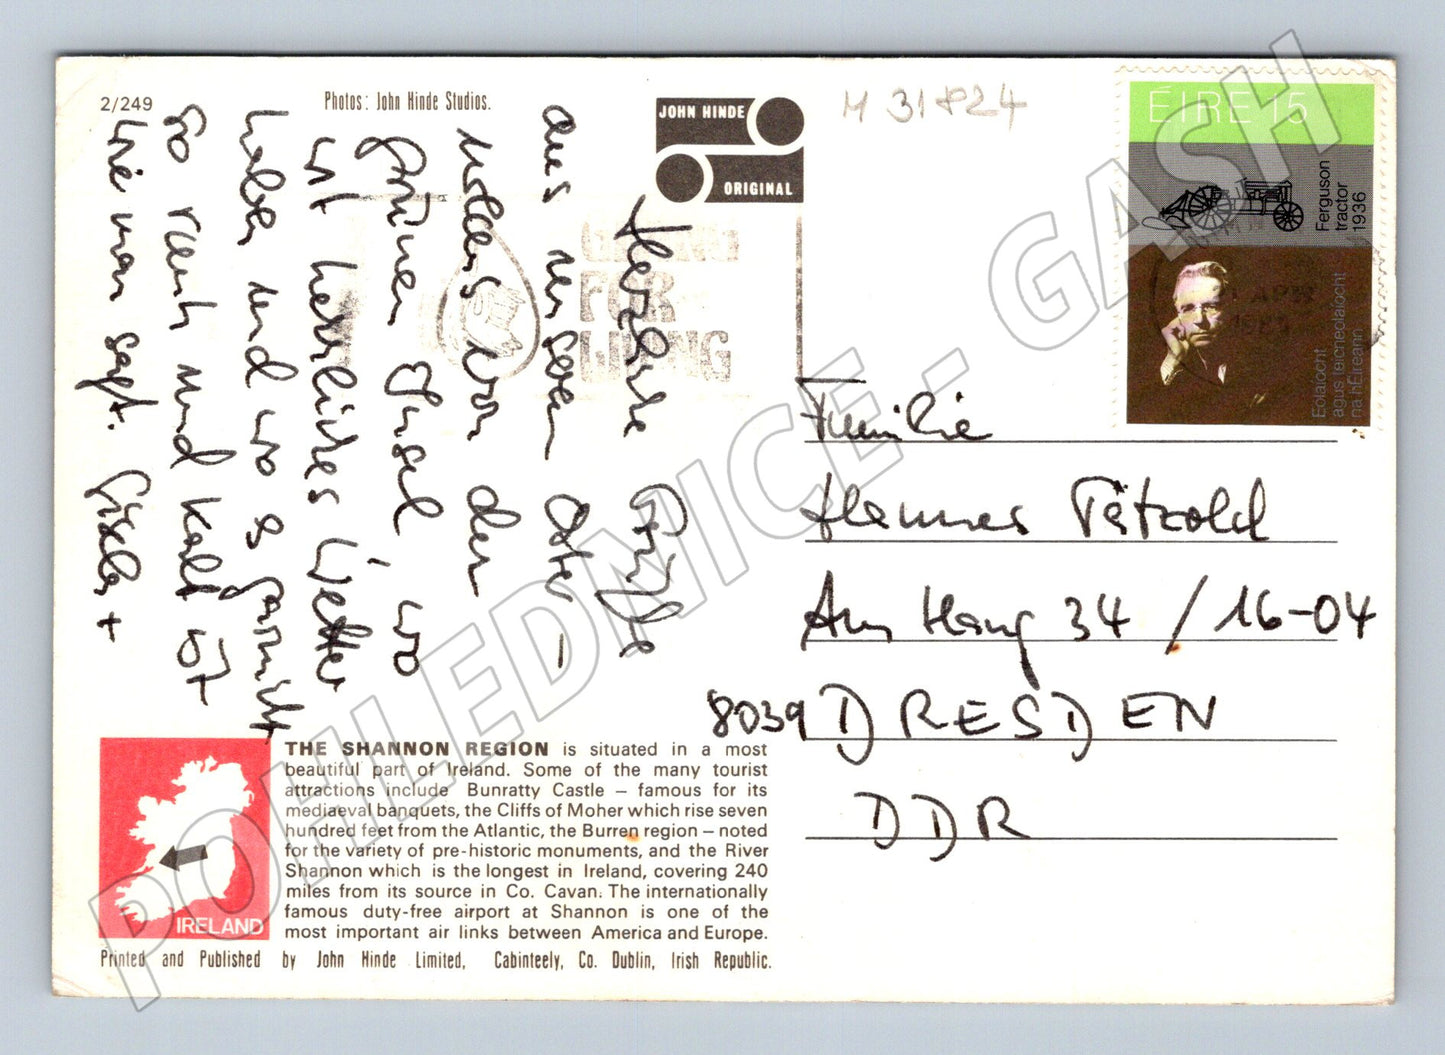 2/249
Photos: John Hinde Studios.
JOHN HINDE
ORIGINAL
M 31824
ÉIRE 15
Ferguson
tractor
1936
Eolaíocht
agus teicneolaíocht
na hÉireann
APR
FOR
Herzliche Grüße
aus unserem Oster-
urlaub von der
grünen Insel wo
ist herrliches Wetter
haben und wo es garnicht
so rauh und kalt ist
wie man sagt. Gisela +
Familie
Hannes Pätzold
Am Hang 34 / 16-04
8039 DRESDEN
DDR
IRELAND
THE SHANNON REGION is situated in a most
beautiful part of Ireland. Some of the many tourist
attractions include Bunratty Castle – famous for its
mediaeval banquets, the Cliffs of Moher which rise seven
hundred feet from the Atlantic, the Burren region – noted
for the variety of pre-historic monuments, and the River
Shannon which is the longest in Ireland, covering 240
miles from its source in Co. Cavan. The internationally
famous duty-free airport at Shannon is one of the
most important air links between America and Europe.
Printed and Published by John Hinde Limited, Cabinteely, Co. Dublin, Irish Republic.
POHLEDNICE - GASH